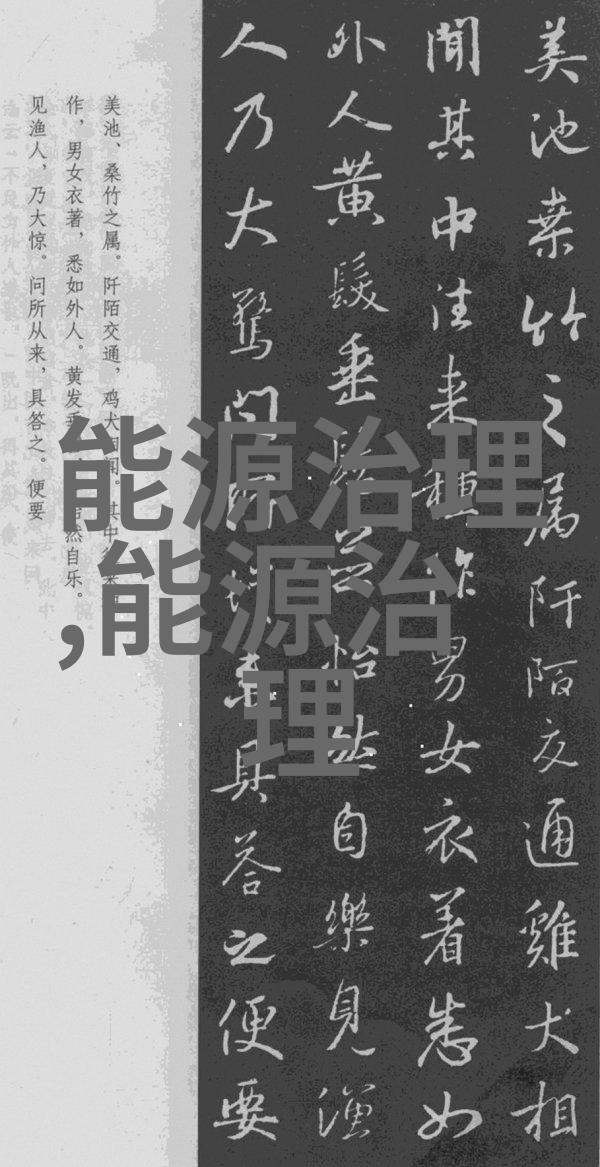 美池桒竹之属阡陌交通雞犬相
聞其中往来種作男女衣着悉如
外人黄髮垂髫並怡然自樂見漁
人乃大驚問所從来具答之便要
美池、桑竹之属。阡陌交通，鸡犬相闻。其中往来
作，男女衣著，悉如外人。黄发垂怡然自乐。
见渔人，乃大惊。问所从来，具答之。便要
能源治理
,能源治
理